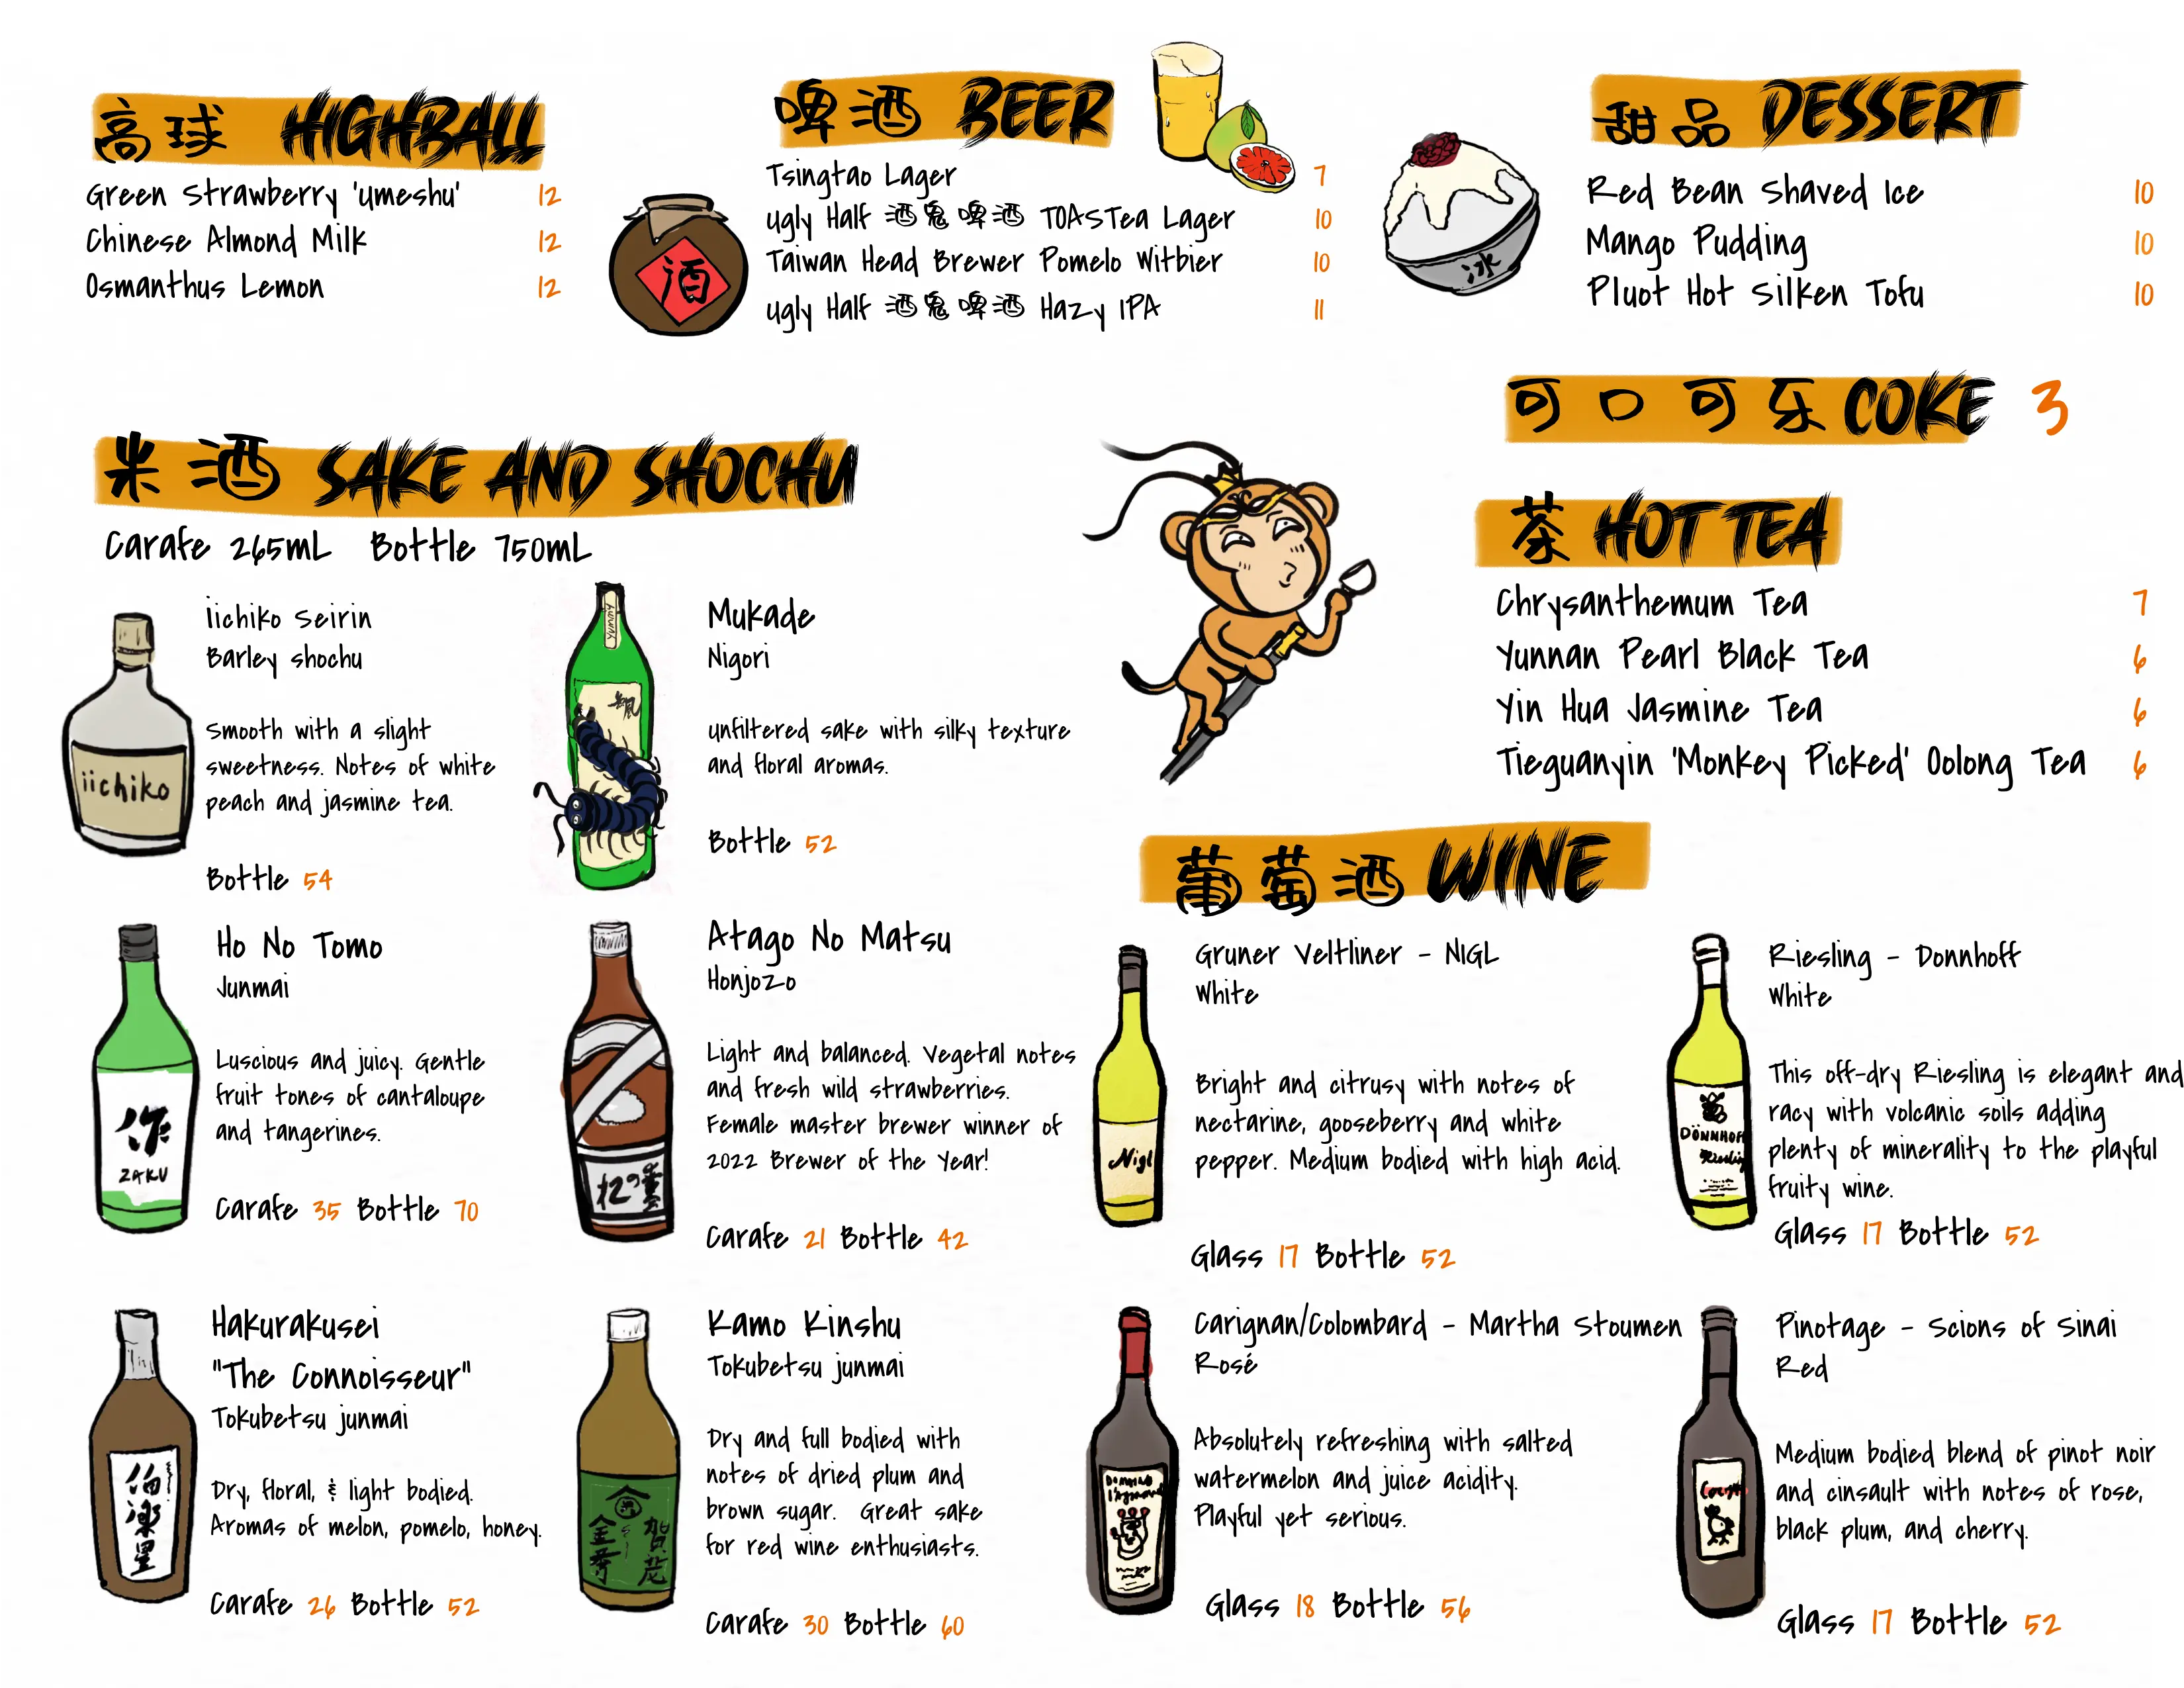 高球 HIGHBALL
Green Strawberry 'Umeshu' 12
Chinese Almond Milk 12
Osmanthus Lemon 12
酒
啤酒 BEER
Tsingtao Lager 7
Ugly Half 酒鬼啤酒 TOASTea Lager 10
Taiwan Head Brewer Pomelo Witbier 10
Ugly Half 酒鬼啤酒 Hazy IPA 11
冰
甜品 DESSERT
Red Bean Shaved Ice 10
Mango Pudding 10
Pluot Hot Silken Tofu 10
可口可乐 COKE 3
茶 HOT TEA
Chrysanthemum Tea 7
Yunnan Pearl Black Tea 6
Yin Hua Jasmine Tea 6
Tieguanyin 'Monkey Picked' Oolong Tea 6
米酒 SAKE AND SHOCHU
Carafe 265mL Bottle 750mL
iichiko
iichiko Seirin
Barley shochu
Smooth with a slight
sweetness. Notes of white
peach and jasmine tea.
Bottle 54
Mukade
Nigori
unfiltered sake with silky texture
and floral aromas.
Bottle 52
作
ZAKU
Ho No Tomo
Junmai
Luscious and juicy. Gentle
fruit tones of cantaloupe
and tangerines.
Carafe 35 Bottle 70
Atago No Matsu
Honjozo
Light and balanced. Vegetal notes
and fresh wild strawberries.
Female master brewer winner of
2022 Brewer of the Year!
Carafe 21 Bottle 42
伯楽星
Hakurakusei
"The Connoisseur"
Tokubetsu junmai
Dry, floral, & light bodied.
Aromas of melon, pomelo, honey.
Carafe 26 Bottle 52
賀茂
金秀
Kamo Kinshu
Tokubetsu junmai
Dry and full bodied with
notes of dried plum and
brown sugar. Great sake
for red wine enthusiasts.
Carafe 30 Bottle 60
葡萄酒 WINE
Nigl
Gruner Veltliner - NIGL
White
Bright and citrusy with notes of
nectarine, gooseberry and white
pepper. Medium bodied with high acid.
Glass 17 Bottle 52
DÖNNHOFF
Riesling
Riesling - Donnhoff
White
This off-dry Riesling is elegant and
racy with volcanic soils adding
plenty of minerality to the playful
fruity wine.
Glass 17 Bottle 52
Carignan/Colombard - Martha Stoumen
Rosé
Absolutely refreshing with salted
watermelon and juice acidity.
Playful yet serious.
Glass 18 Bottle 56
Pinotage - Scions of Sinai
Red
Medium bodied blend of pinot noir
and cinsault with notes of rose,
black plum, and cherry.
Glass 17 Bottle 52